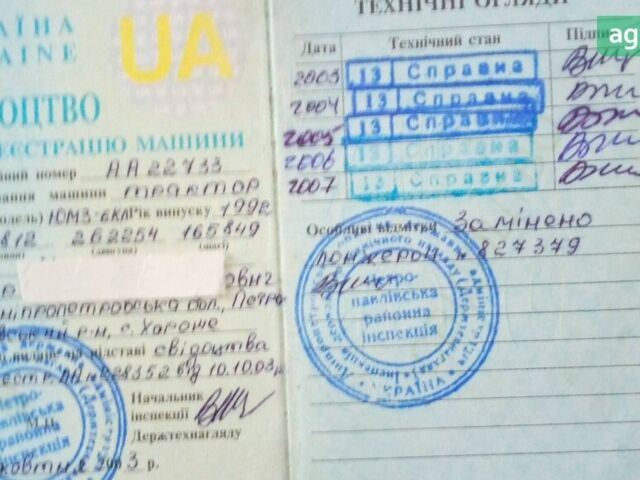 АЇНА
AINE
UA
ОЦТВО
ЕЄСТРАЦІЮ МАШИНИ
ний номер АА 22733
вання машини трактор
одель) ЮМЗ-6КЛ Рік випуску 1992
812 262254 165849
(шасі)
ніпропетровська обл., Петро
вський р-н, с. Хороше
видане на підставі свідоцтва
10.10.03р
Начальник
інспекції
М.П.
Держтехнагляду
жовтня 2003 р.
ТЕХНІЧНІ ОГЛЯДИ
Дата Технічний стан Підпи
ag
2003 13 Справна
2004 13 Справна
2005 13 Справна
2006 13 Справна
2007 13 Справна
Особливі відмітки Замінено
лонжерон № 827379
Петро-
павлівська
районна
інспекція
УКРАЇНА